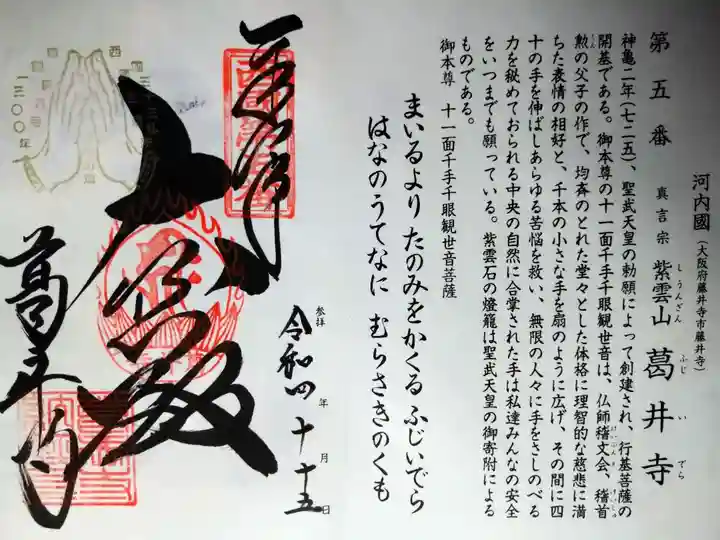 河内國（大阪府藤井寺市藤井寺）
第五番 真言宗 紫雲山 葛井寺
しうんざん ふじいでら
神亀二年(七二五)、聖武天皇の勅願によって創建され、行基菩薩の
開基である。御本尊の十一面千手千眼観世音は、仏師稽文会、稽首
勲の父子の作で、均斉のとれた堂々とした体格に理智的な慈悲に満
ちた表情の相好と、千本の小さな手を扇のように広げ、その間に四
十の手を伸ばしあらゆる苦悩を救い、無限の人々に手をさしのべる
力を秘めておられる中央の自然に合掌された手は私達みんなの安全
をいつまでも願っている。紫雲石の燈籠は聖武天皇の御寄附による
ものである。
御本尊 十一面千手千眼観世音菩薩
まいるより たのみをかくる ふじいでら
はなのうてなに むらさきのくも
参拝 令和四年十月十五日
大悲殿
葛井寺
西
一三〇〇年